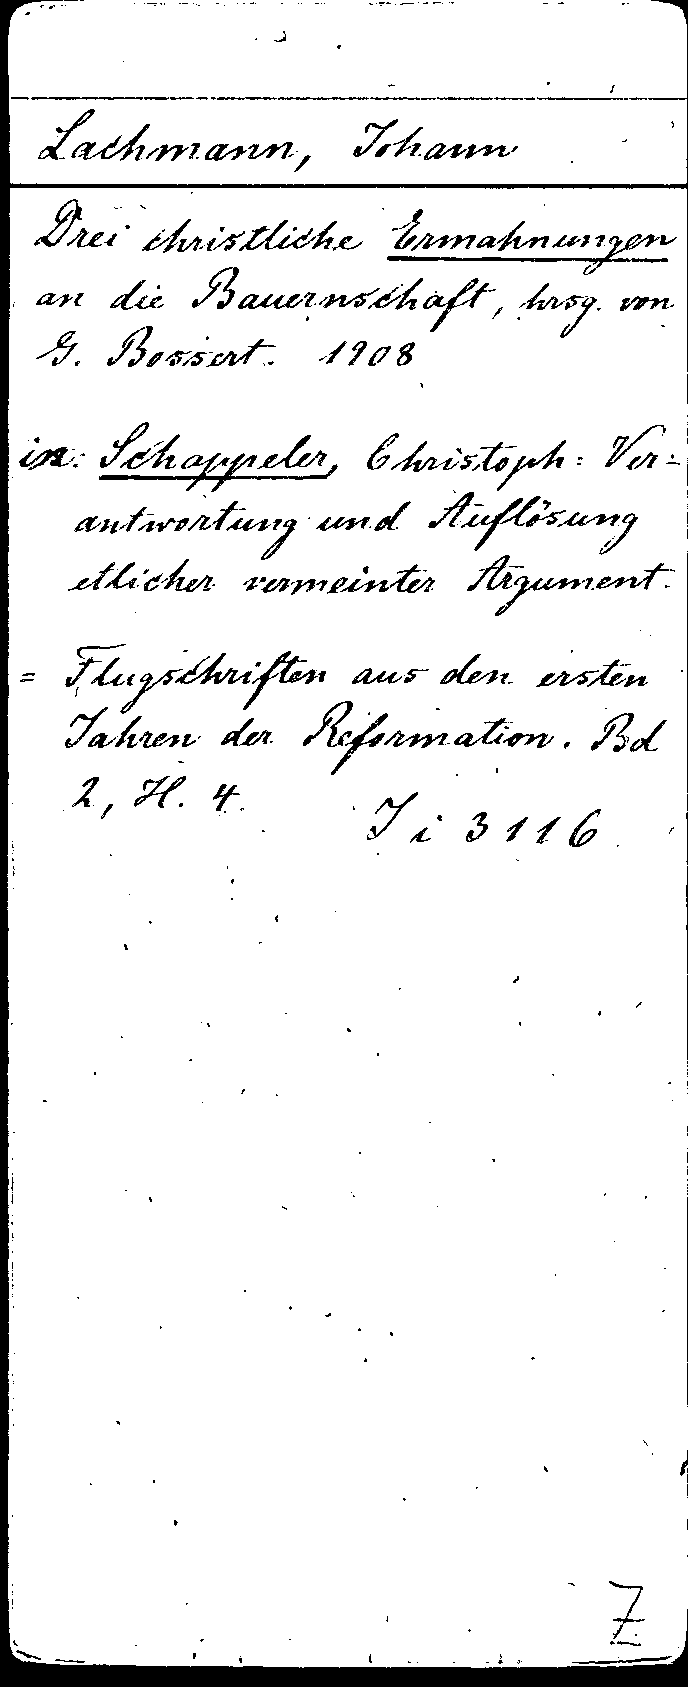 Lachmann, Johann
Drei christliche Ermahnungen
an die Bauernschaft, hrsg. von
G. Bossert. 1908
in: Schappeler, Christoph: Ver-
antwortung und Auflösung
etlicher vermeinter Argument.
= Flugschriften aus den ersten
Jahren der Reformation. Bd
2, H. 4.
Ji 3116
Z